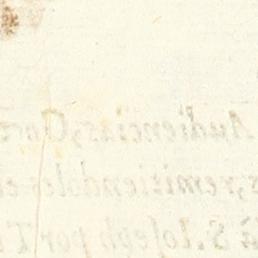 Audiencias, Gov
s, remitiendoles en
à S. Ioseph por T